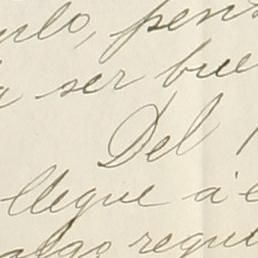 ulo, pens
a ser bue
Del
llegue á e
algo regul